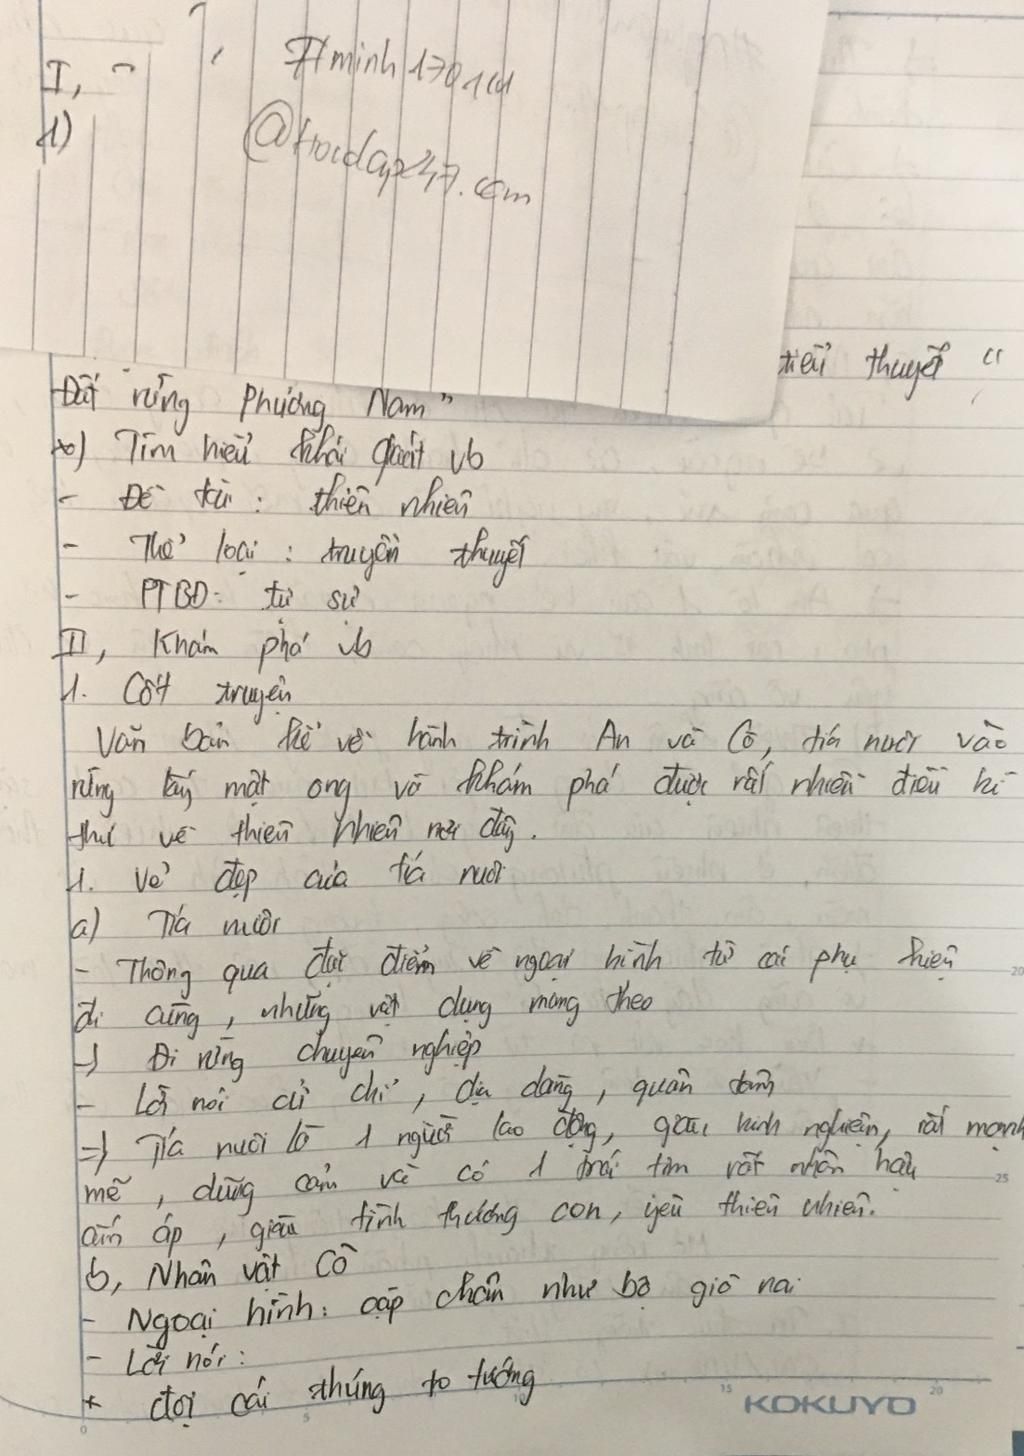 I,
#minh170114
1)
@hoidap247.com
tiểu thuyết "
Đất rừng Phương Nam"
*) Tìm hiểu khái quát vb
- Đề tài : thiên nhiên
- Thể loại : truyền thuyết
- PTBĐ: tự sự
II, Khám phá vb
1. Cốt truyện
Văn bản kể về hành trình An và Cò, tía nuôi vào
rừng lấy mật ong và khám phá được rất nhiều điều kì
thú về thiên nhiên nơi đây.
1. Vẻ đẹp của tía nuôi
a) Tía nuôi
- Thông qua đặc điểm về ngoại hình từ cái phụ kiện
đi cùng, những vật dụng mang theo
-> Đi rừng chuyên nghiệp
- Lời nói cử chỉ, dịu dàng, quan tâm
=> Tía nuôi là 1 người lao động, giàu kinh nghiệm, rất mạnh
mẽ, dũng cảm và có 1 trái tim rất nhân hậu
ấm áp, giàu tình thương con, yêu thiên nhiên.
b, Nhân vật Cò
- Ngoại hình: cặp chân như bộ giò nai
- Lời nói:
+ đội cái thúng to tướng
KOKUYO
0 5 15 20
20
25